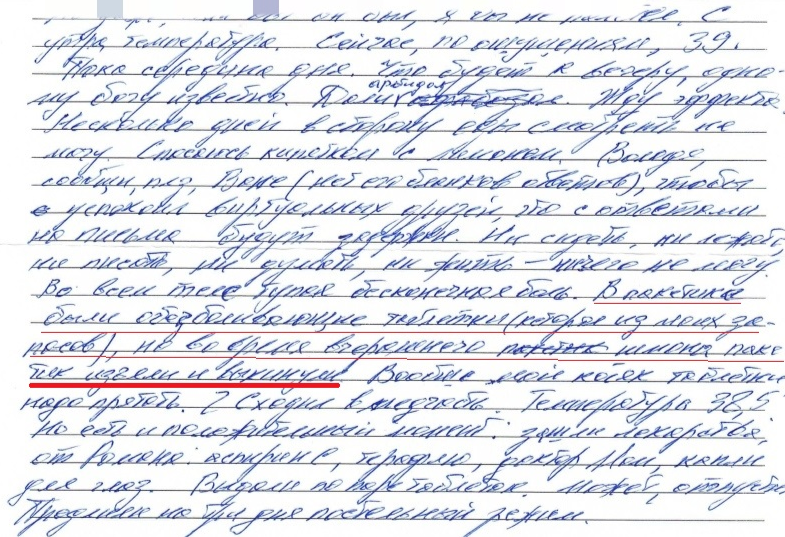 утра температура. Сейчас, по ощущениям, 39.
Пока середина дня. Что будет к вечеру, одно-
му богу известно. Попил арбидол. Жду эффекта.
Несколько дней в сторону еды смотреть не
могу. Спасаюсь кипятком с лимоном. (Володя,
сообщи, плз, Ване (нет его бланков ответов), чтобы
успокоил виртуальных друзей, что с ответами
на письма будут задержки. Ни сидеть, ни лежать,
ни писать, ни думать, ни жить – ничего не могу.
Во всем теле тупая бесконечная боль. В пакетике
были обезболивающие таблетки (которые из моих за-
пасов), но во время вчерашнего шмона паке-
тик изъяли и выкинули. Вообще мой косяк таблетки
надо прятать. Сходил в медчасть. Температура 38,5
Но есть и положительный момент: зашли лекарства,
от Романа: аспирин С, терафлю, доктор Мом, капли
для глаз. Выдали по паре таблеток. Может, отпустит
Продлили на три дня постельный режим.